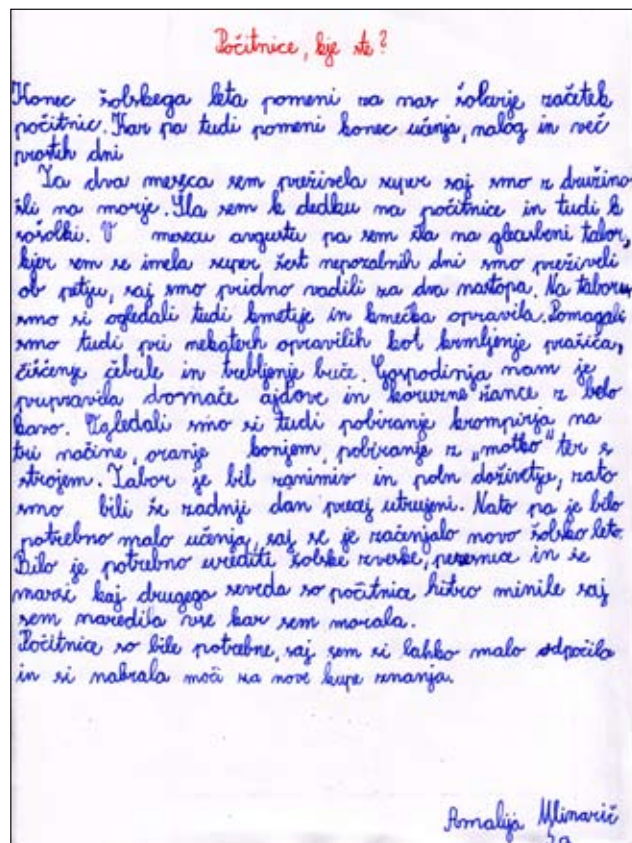 Počitnice, kje ste?
Konec šolskega leta pomeni za nas šolarje začetek
počitnic. Kar pa tudi pomeni konec učenja, nalog in več
prostih dni
Ta dva meseca sem preživela super saj smo z družino
šli na morje. Šla sem k dedku na počitnice in tudi k
sošolki. V mesecu avgustu pa sem šla na glasbeni tabor,
kjer sem se imela super, šest nepozabnih dni smo preživeli
ob petju, saj smo pridno vadili za dva nastopa. Na taboru
smo si ogledali tudi kmetije in kmečka opravila. Pomagali
smo tudi pri nekaterh opravilih kot krmljenje prašiča,
čiščenje čebule in trebljenje buče. Gospodinja nam je
pripravila domače ajdove in koruzne žgance z belo
kavo. Ogledali smo si tudi pobiranje krompirja na
tri načine, oranje konjem, pobiranje z „motko" ter s
strojem. Tabor je bil zanimiv in poln doživetij, zato
smo bili že zadnji dan precej utrujeni. Nato pa je bilo
potrebno malo učenja, saj se je začenjalo novo šolsko leto.
Bilo je potrebno urediti šolske zvezke, peresnica in še
marsi kaj drugega seveda so počitnice hitro minile saj
sem naredila vse kar sem morala.
Počitnice so bile potrebne, saj sem si lahko malo odpočila
in si nabrala moči za nove kupe znanja.
Amalija Mlinarič